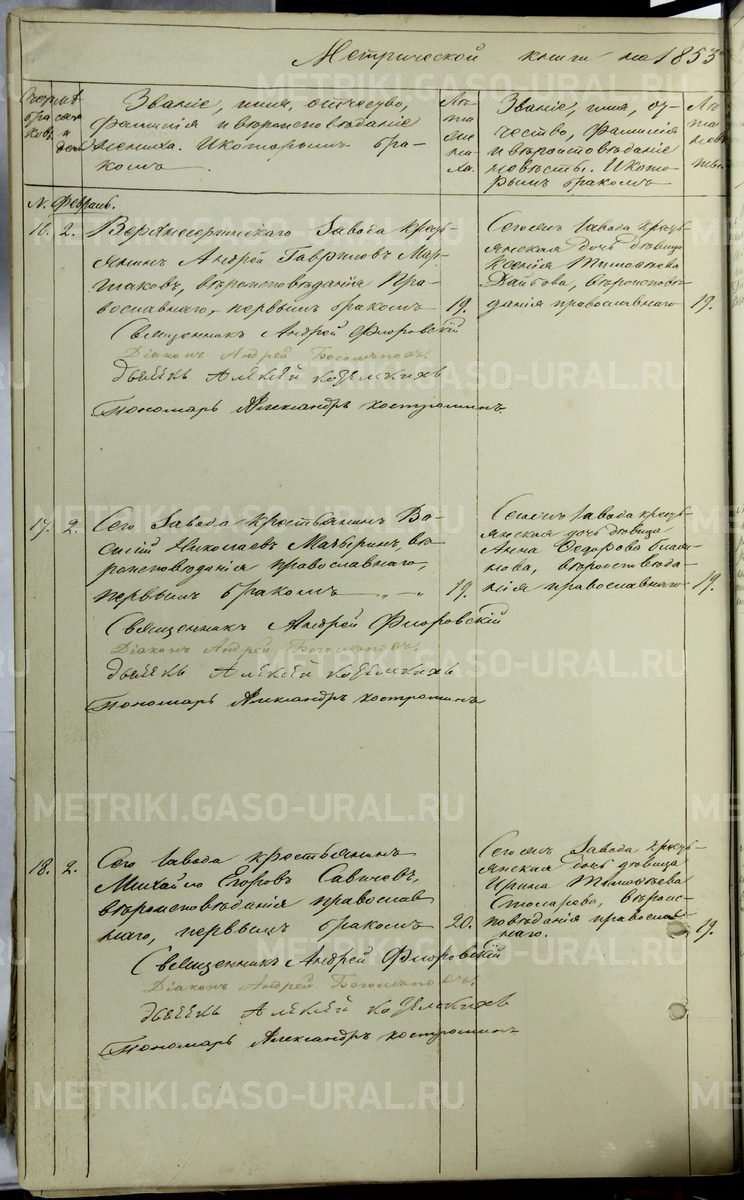 Метрической книги на 1853
Счетъ бра ковъ
Мѣсяцъ и день
Званіе, имя, отчество,
фамилія и вѣроисповѣданіе
жениха. И которымъ бра-
комъ
Лѣ-
та
же
ни-
ха.
Званіе, имя, от-
чество, фамилія
и вѣроисповѣданіе
невѣсты. И кото-
рымъ бракомъ
Лѣ
та
невѣ
сты.
N. Февраль.
16. 2.
Крестъ-
янинъ Андрей Гавриловъ
вѣроисповѣданія Пра-
вославнаго, первымъ бракомъ 19.
Священникъ Андрей Флоровскій
Діаконъ Андрей
Дьячекъ Алексѣй
Пономарь Александръ Костроминъ.
Сегожъ Завода кресть-
янская дочь дѣвица
Ксенія Тимофѣева
вѣроисповѣ-
данія православнаго 19.
17. 2.
Сего Завода крестьянинъ Ва-
силій Николаевъ вѣ-
роисповѣданія православнаго,
первымъ бракомъ 19.
Священникъ Андрей Флоровскій
Діаконъ Андрей
Дьячекъ Алексѣй
Пономарь Александръ Костроминъ
Сегожъ завода кресть-
янская дочь дѣвица
Анна Федорова
вѣроисповѣда-
нія православнаго 19.
18. 2.
Сего завода крестьянинъ
Михайло Егоровъ Савичевъ,
вѣроисповѣданія православ
наго, первымъ бракомъ 20.
Священникъ Андрей Флоровскій
Діаконъ Андрей
Дьячекъ Алексѣй
Пономарь Александръ Костроминъ
Сегожъ Завода кресть-
янская дочь дѣвица
Ирина Тимофѣева
Столярова, вѣроис-
повѣданія православ-
наго. 19.
METRIKI.GASO-URAL.RU